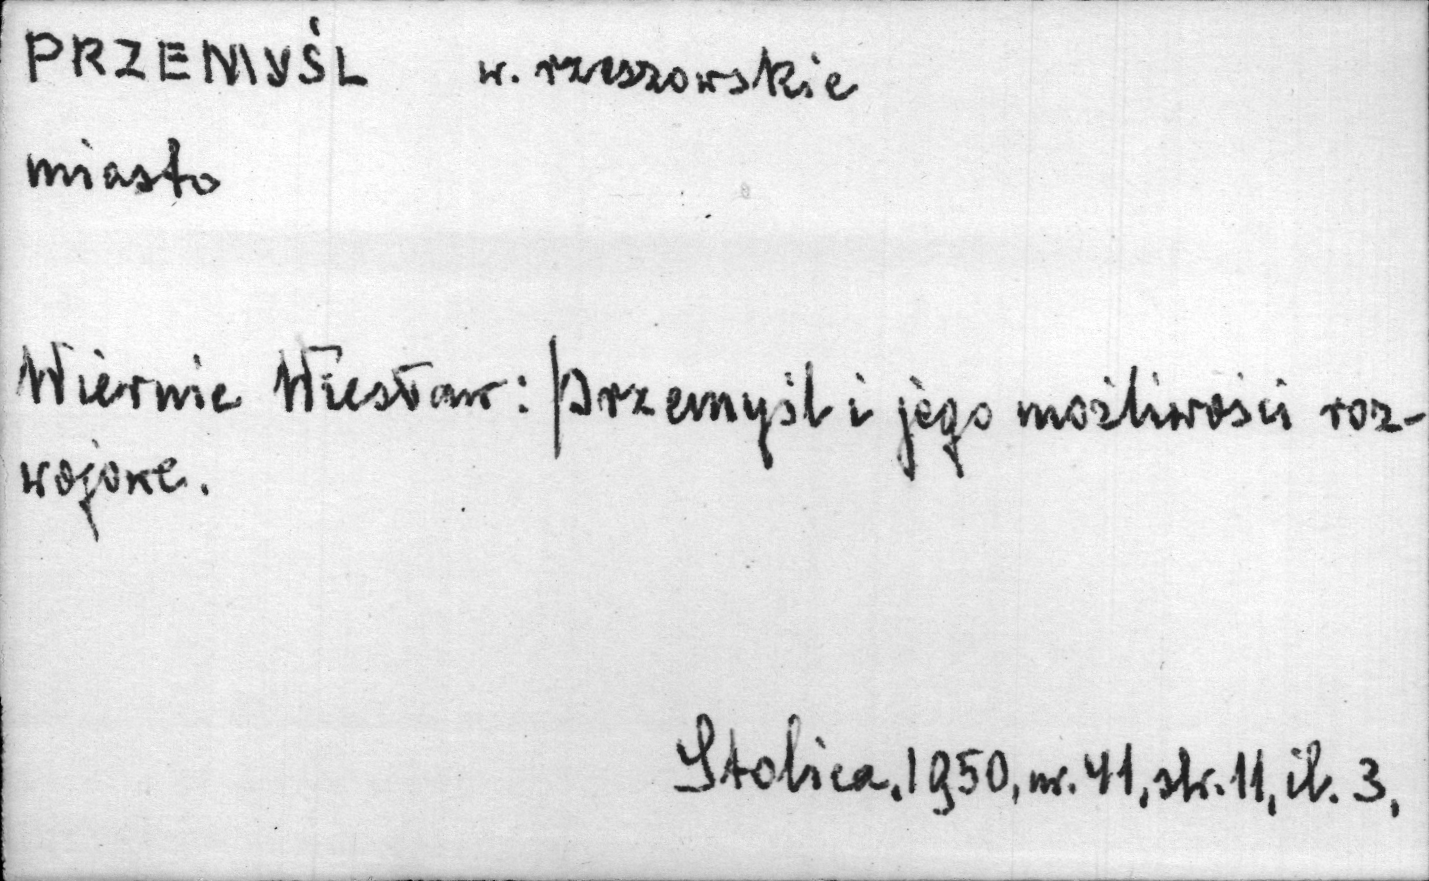 PRZEMYŚL w. rzeszowskie
miasto
Wiernie Wiesław: Przemyśl i jego możliwości roz-
wojowe.
Stolica, 1950, nr. 41, str. 11, il. 3,